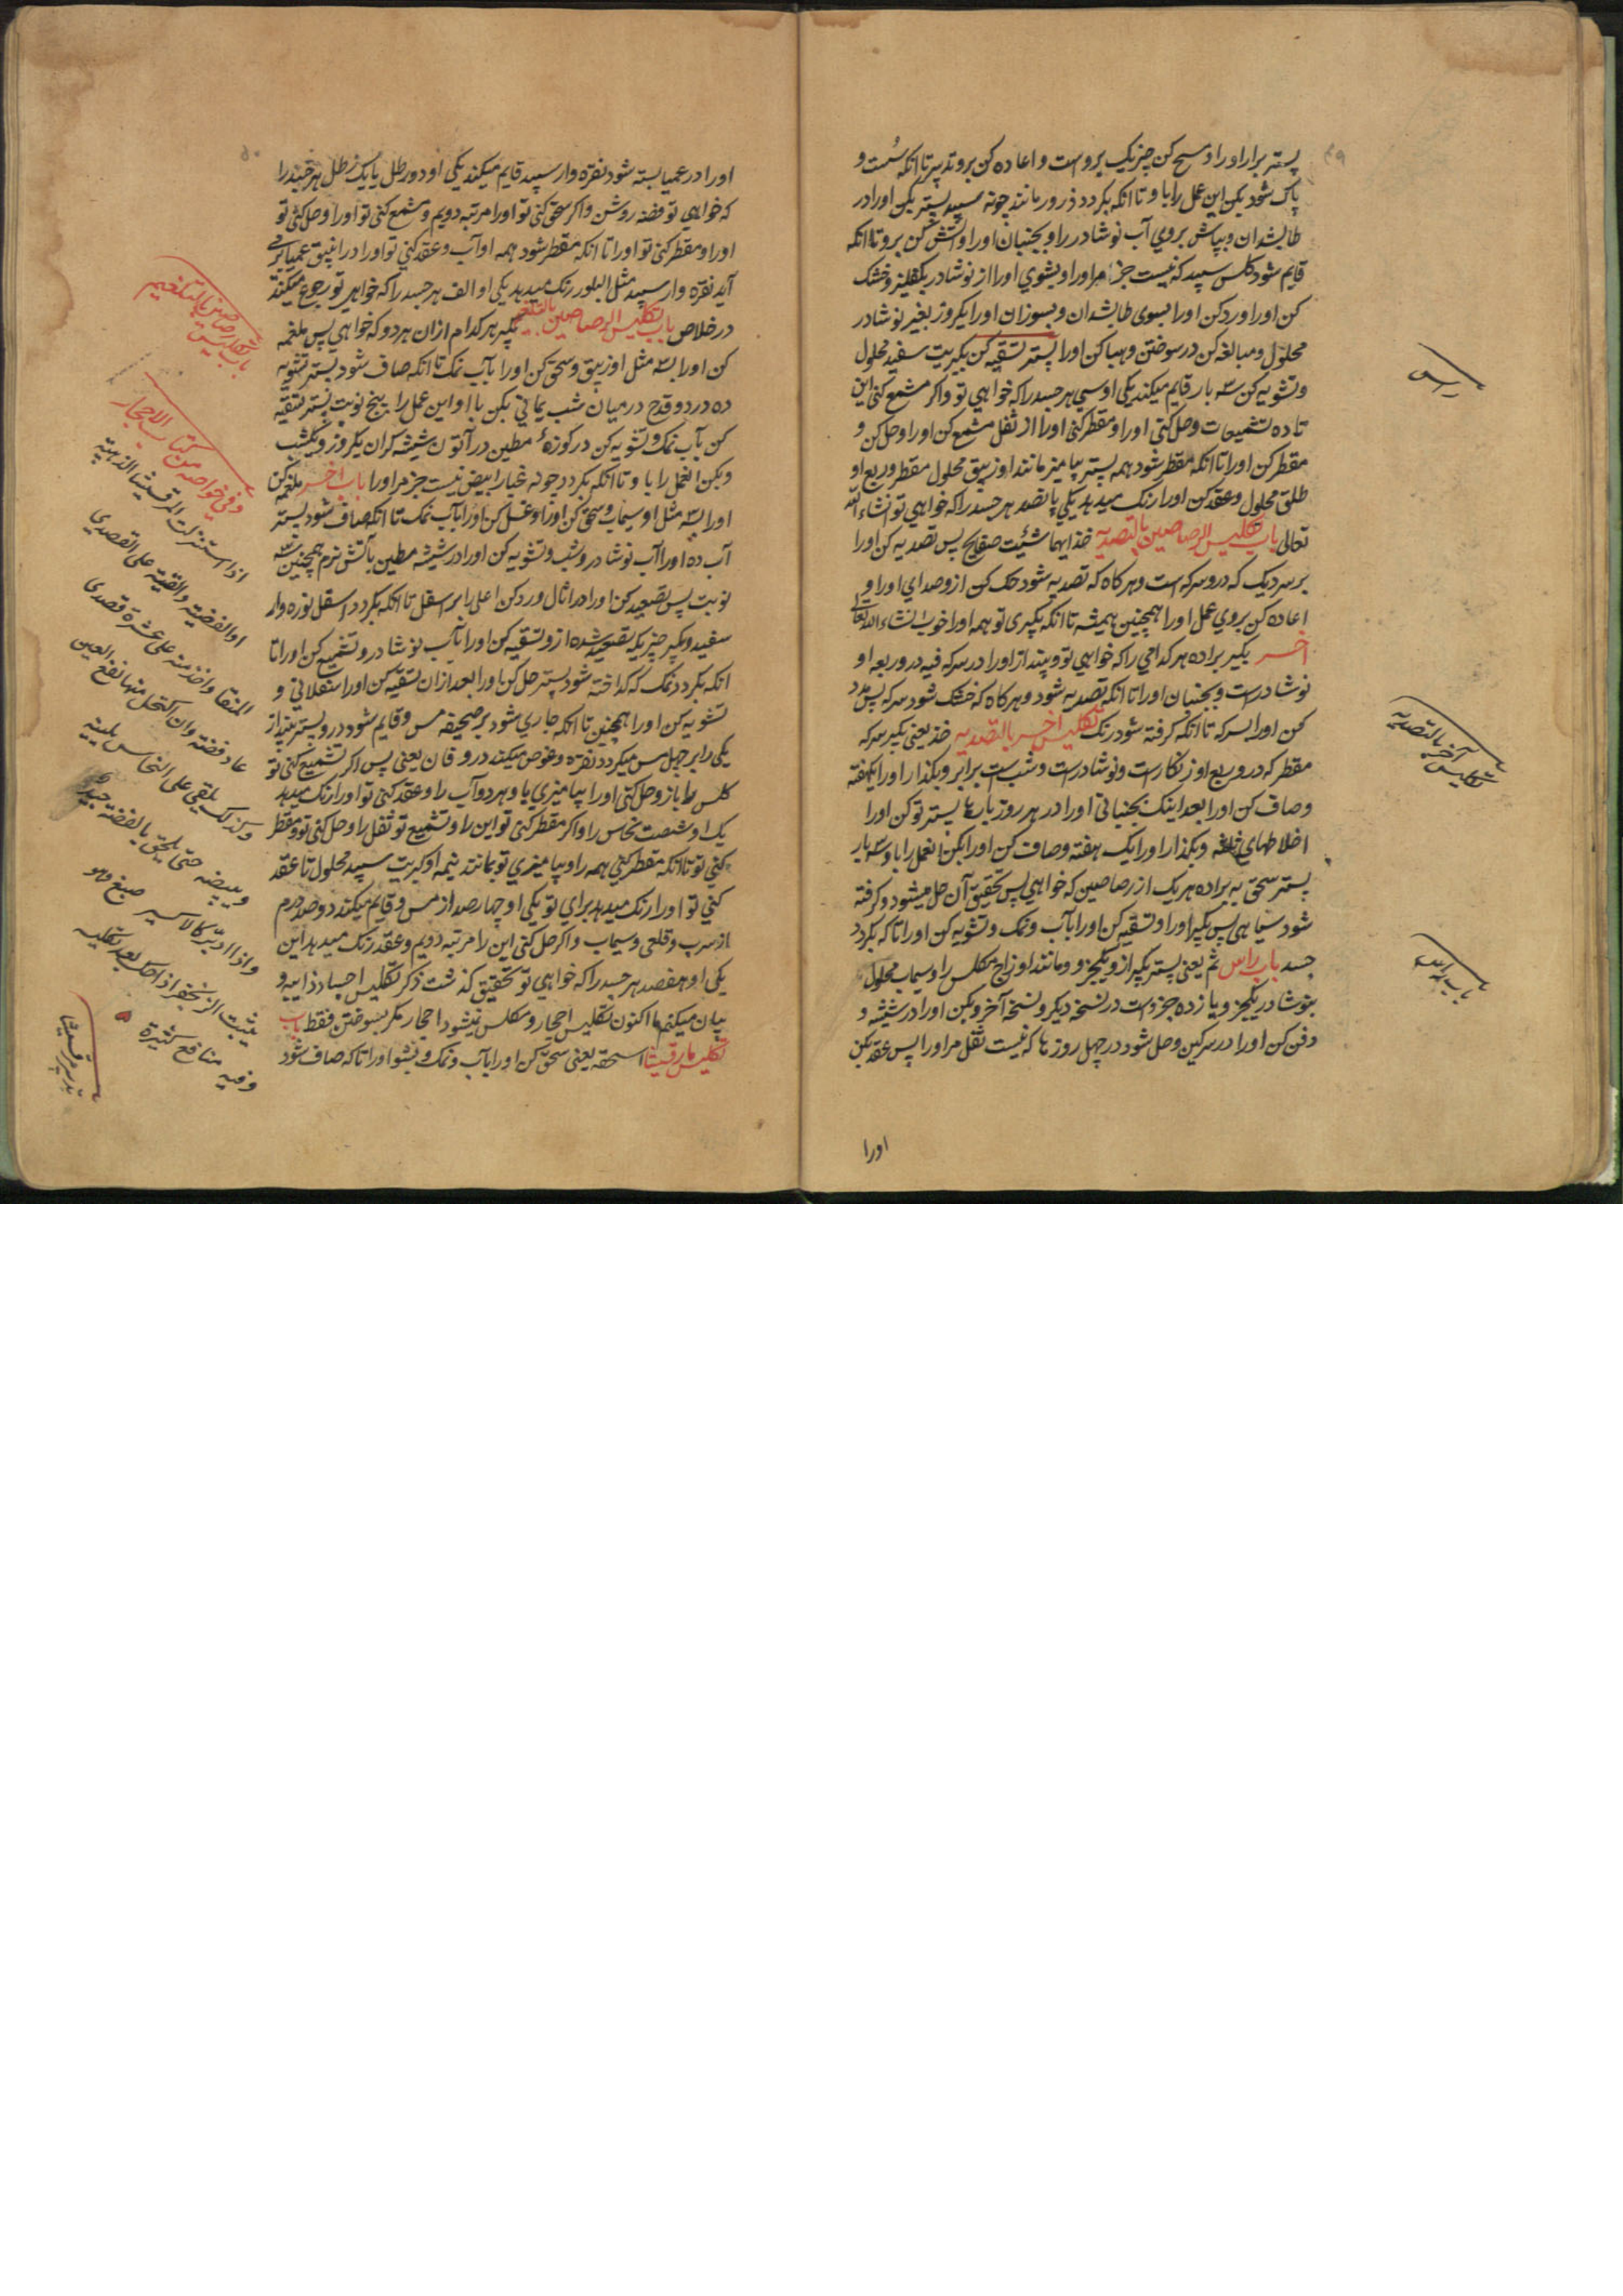 ۴۹
پستر برار اورا و سحق کن چیزیکه بروست و اعاده کن برو تدبیر تا آنکه سُست و
پاک شود بکن این عمل را با و تا آنکه بکردد ذرور مانند چونه سپید پستر بکیر اورا در
طابشدان و بپاش بروي آب نوشادر را و بجنبان اورا و آتش کن برو تا آنکه
قایم شود کلس سپید که نیست جزء مر اورا و بشوي اورا از نوشادر بکقلیز و خشک
کن اورا و رد کن اورا بسوی طابشدان و بسوزان اورا یکروز بغیر نوشادر
محلول و مبالغه کن در سوختن و هبا کن اورا پستر تسقیه کن بکبریت سفید محلول
و تشویه کن سه بار قایم میکند یکی او سي هر جسد را که خواهي تو و اکر مشمع کنی این
تا ده تشمیعات و حل کنی اورا و مقطر کنی اورا از ثفل مشمع کن اورا و حل کن و
مقطر کن اورا تا آنکه مقطر شود همه پستر بیامیز مانند او زیبق محلول مقطر و ربع او
طلق محلول و عقد کن اورا رنک میدهد یکي پانصد هر جسد را که خواهي تو انشاء الله
تعالی باب تکلیس الرصاصین بالتصدیه خذ ایهما شئت صفایح پس تصدیه کن اورا
بر سر دیک که درو سرکه است و هرکاه که تصدیه شود حک کن ازو صداي اورا و
اعاده کن بروي عمل اورا همچنین همیشه تا آنکه بکیری تو همه اورا خوب انشاء الله تعالی
اخــر بکیر براده هر کدامي را که خواهي تو و بینداز اورا در سرکه فیه در و ربعه او
نوشادرست و بجنبان اورا تا آنکه تصدیه شود و هرکاه که خشک شود سرکه پس رد
کن اورا بسرکه تا آنکه کرفته شود رنک تکلیس اخــر بالتصدیه خذ یعنی بکیر سرکه
مقطر که درو ربع او زنکارست و نوشادرست و شب ست برابر و بکذار اورا یکهفته
و صاف کن اورا بعد اینکه بجنباني اورا در هر روز بارها پستر تو کن اورا
اخلاطهای و بکذار اورا یک هفته و صاف کن اورا بکن العمل را با و سه بار
پستر سحق به براده هر یک از رصاصین که خواهي پس تحقیق آن حل میشود و کرفته
شود سیاهي پس بکیر اورا و تنقیه کن اورا بآب و نمک و تشویه کن اورا تا که بکردد
جسد باب راس ثم یعنی پستر بکیر ازو یکجزو و مانند او زاج مکلس را و سیماب محلول
بنوشادر یکجزو و یازده جزءست در نسخه دیکر و نسخه آخر و بکن اورا در شیشه و
دفن کن اورا در سرکین و حل شود در چهل روزها که نیست ثفل مر اورا پس عقد بکن
اورا
راس
تکلیس آخر بالتصدیه
باب راس
۵۰
اورا در عمیا بسته شود نقره وار سپید قایم میکند یکي او دو رطل یا یک رطل هر جسد را
که خواهي تو فضه روشن و اکر سحق کنی تو اورا مرتبه دویم و مشمع کنی تو اورا و حل کنی تو
اورا و مقطر کنی تو اورا تا آنکه مقطر شود همه او آب و عقد کنی تو اورا در انبیق عمیا بر
آید نقره وار سپید مثل البلور رنک میدهد یکی او الف هر جسد را که خواهي تو رجوع میکند
در خلاص باب تکلیس الرصاصین بالتلغیم بکیر هر کدام از ان هر دو که خواهي پس ملغمه
کن اورا بسه مثل او زیبق و سحق کن اورا بآب نمک تا آنکه صاف شود پستر تشویه
ده در دو قدح درمیان شب یماني بکن با او این عمل را پنج نوبت پستر تنقیه
کن بآب نمک و تشویه کن در کوزهٔ مطین در آتون شیشه کران یکروز و یکشب
و بکن العمل را با و تا آنکه بکردد چونه غبار ابیض نیست جزء مر اورا باب اخــر ملغمه کن
اورا بسه مثل او سیماب و سحق کن اورا و غسل کن اورا بآب نمک تا آنکه صاف شود پستر
آب ده اورا آب نوشادر و شب و تشویه کن اورا در شیشه مطین بآتش نرم همچنین سه
نوبت پس تصعید کن اورا در اثال و رد کن اعلی را بر اسفل تا آنکه بکردد اسفل نوره وار
سفید و بکیر چیزیکه تصعید شده ازو تسقیه کن اورا بآب نوشادر و تشمیع کن اورا تا
آنکه بکردد نمک که کداخته شود پستر حل کن اورا بعد ازان تسقیه کن اورا سفلاني و
تشویه کن اورا همچنین تا آنکه جاري شود بر صحیفه مس و قایم شود درو پستر بینداز
یکی را بر چهل مس میکردد نقره و غوص میکند درو فان یعنی پس اکر تشمیع کنی تو
کلس را باز و حل کنی اورا بیامیزي با و هر دو آب را و عقد کنی تو اورا رنک میدهد
یک او شصت نحاس را و اکر مقطر کنی تو این را و تشمیع تو ثفل را و حل کنی تو و مقطر
کنی تو تا آنکه مقطر کنی همه را و بیامیزي تو بمانند نیمه او کبریت سپید محلول تا عقد
کني تو اورا رنک میدهد براي تو یکی او چهار صد از مس و قایم میکند دو صد درم
از سرب و قلعی و سیماب و اکر حل کنی این را مرتبه دویم و عقد رنک میدهد این
یکی او هفصد هر جسد را که خواهي تو تحقیق کذشت ذکر تکلیس اجساد ذایبه و
بیان میکنم ما اکنون تکلیس احجار و مکلس نمیشود احجار مکر بسوختن فقط باب
تکلیس مارقیشا اسحقه یعنی سحق کن اورا بآب و نمک و بشو اورا تا که صاف شود
باب تکلیس رصاصین بالتلغیم
وفي خواصه من کتاب الاحجار
اذا استنزلت المرقشیثا الذهبیة
او الفضیة والقیته علی القصدیر
المنقا واخذ منه علی عشرة قصدیر
عاد فضة وان اکتحل منها نفع العین
وکذلک یلقی علی النحاس یلینه
ویبیضه حتی یلحق بالفضة جیدة
واذا دبر کالاکسیر صبغ وهو
یثبت الزنجفر اذا حک بعد تکلیه
وفیه منافع کثیرة ۵
تدبیر مرقشیثا